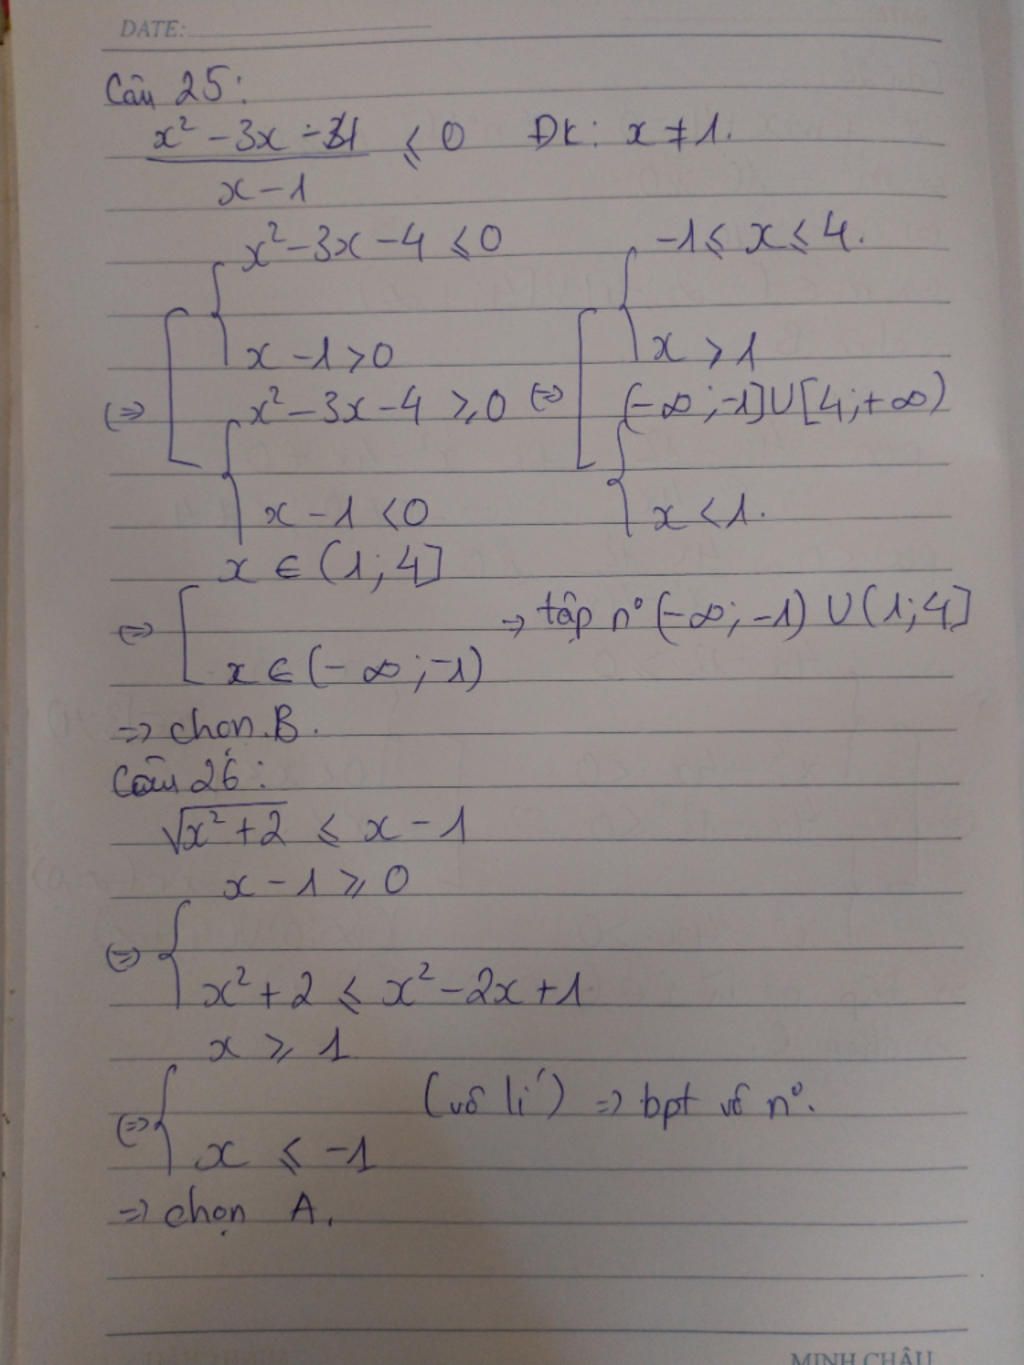 DATE:
Câu 25:
x² - 3x - 4 / x - 1 ≤ 0 ĐK: x ≠ 1.
x² - 3x - 4 ≤ 0 -1 ≤ x ≤ 4.
x - 1 > 0 x > 1
(=) x² - 3x - 4 ≥ 0 (=) (-∞; -1] ∪ [4; +∞)
x - 1 < 0 x < 1.
x ∈ (1; 4]
(=) => tập n° (-∞; -1) ∪ (1; 4]
x ∈ (-∞; -1)
=> chọn B.
Câu 26:
√x² + 2 ≤ x - 1
x - 1 ≥ 0
(=)
x² + 2 ≤ x² - 2x + 1
x ≥ 1
(=>) (vô lí) => bpt vô n°.
x ≤ -1
=> chọn A.
MINH CHÂU